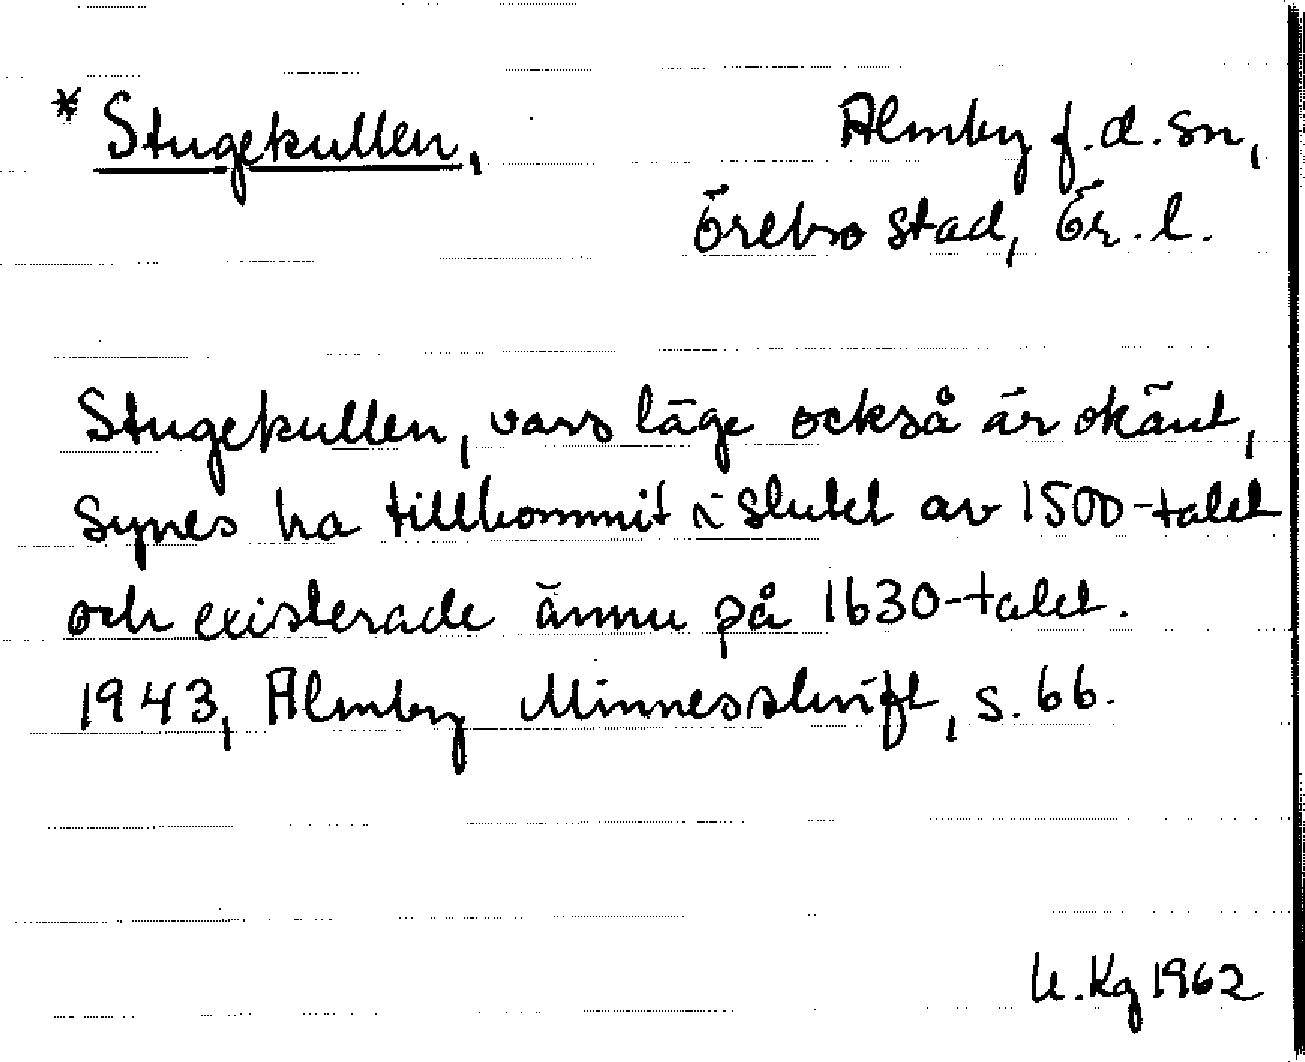 * Stugekullen, Almby f.d. sn,
Örebro stad, Ör. l.
Stugekullen, vars läge också är okänt,
synes ha tillkommit i slutet av 1500-talet
och existerade ännu på 1630-talet.
1943, Almby Minnesskrift, s. 66.
U. Kg 1962